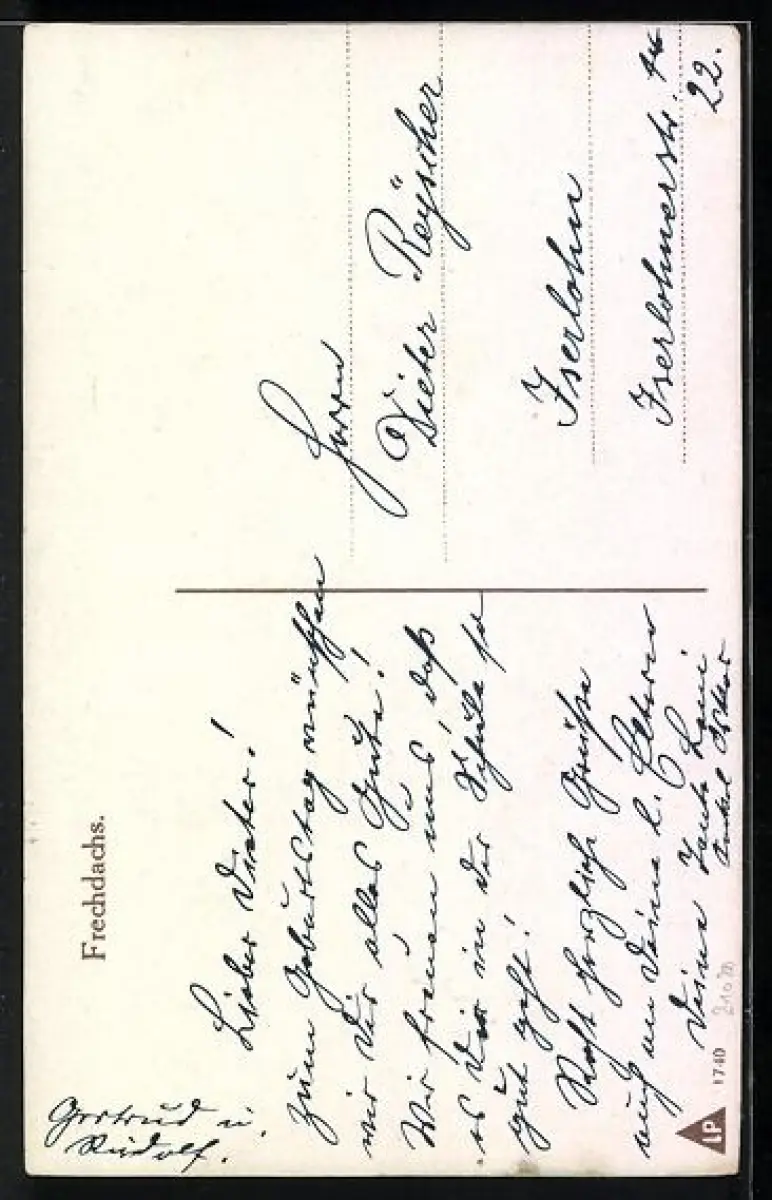 Frechdachs.
Lieber Dieter!
Zum Geburtstag wünschen
wir Dir alles Gute!
Wir freuen uns, daß
es Dir in der Schule so
gut geht!
Recht herzliche Grüße
auch an Deine l. Eltern
Deine Tante Leni
Onkel
Gertrud u.
Rudolf.
Herrn
Dieter Reÿscher
Iserlohn
Iserlohnerstr.
22.
LP
1740